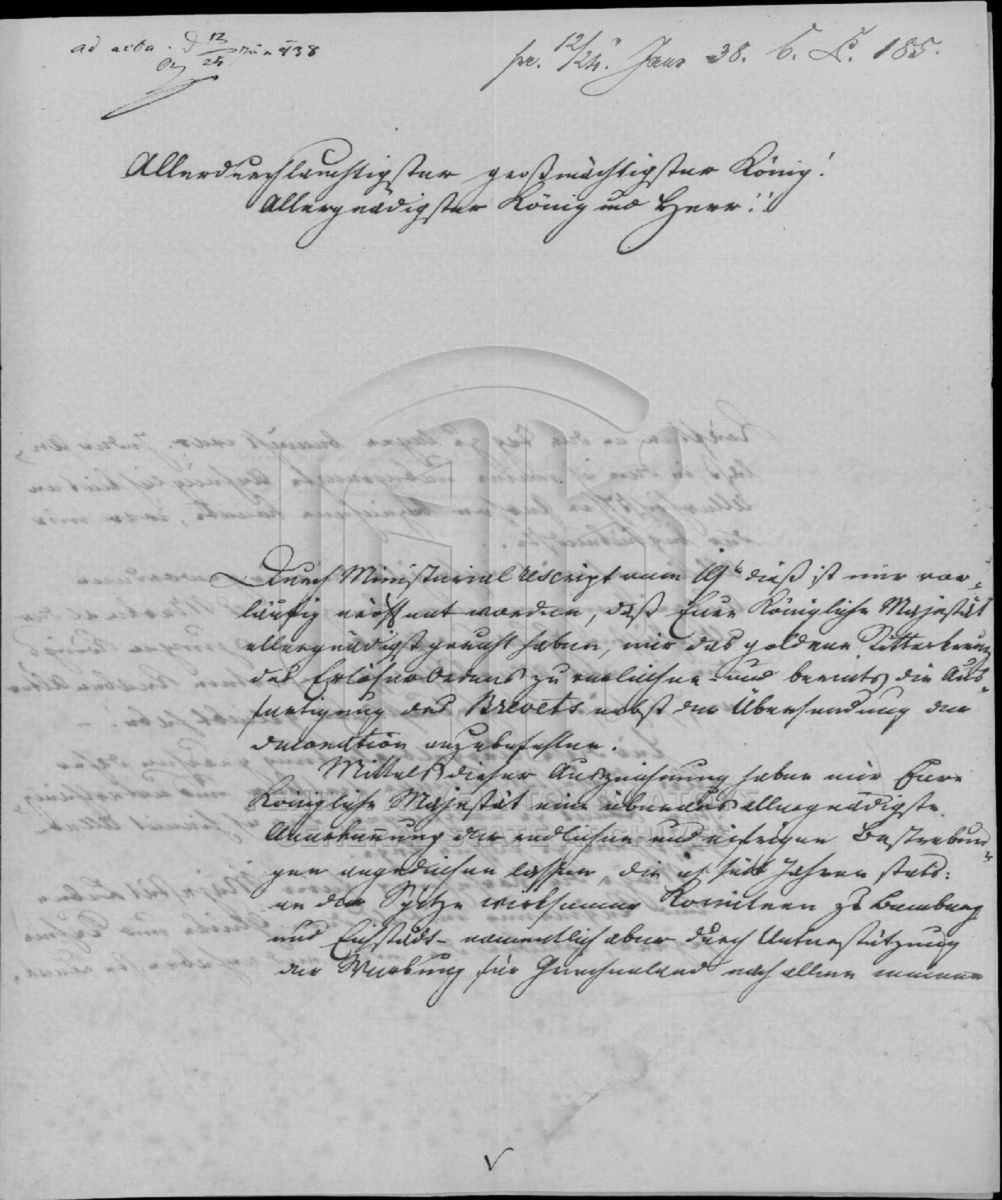 ad acta. d 12/24 Jan 838
pr. 12/24. Janr 38. C. N. 185.
Allerdurchlauchtigster großmächtigster König!
Allergnädigster König und Herr!!
Durch Ministerialrescript vom 19t dieß ist mir vor-
läufig eröffnet worden, daß Eure Königliche Majestät
allergnädigst geruht haben, mir das goldene Ritterkreuz
des Erlöser Ordens zu verleihen und bereits die Aus-
fertigung des Brevets nebst der Übersendung der
Decoration anzubefehlen.
Mittels dieser Auszeichnung haben mir Eure
Königliche Majestät eine überaus allergnädigste
Anerkennung der redlichen und eifrigen Bestrebun-
gen angedeihen lassen, die ich seit Jahren stets
an der Spitze wirksamer Komiteen zu Bamberg
und Eichstädt - namentlich aber durch Unterstützung
der Werbung für Griechenland nach allen meinen